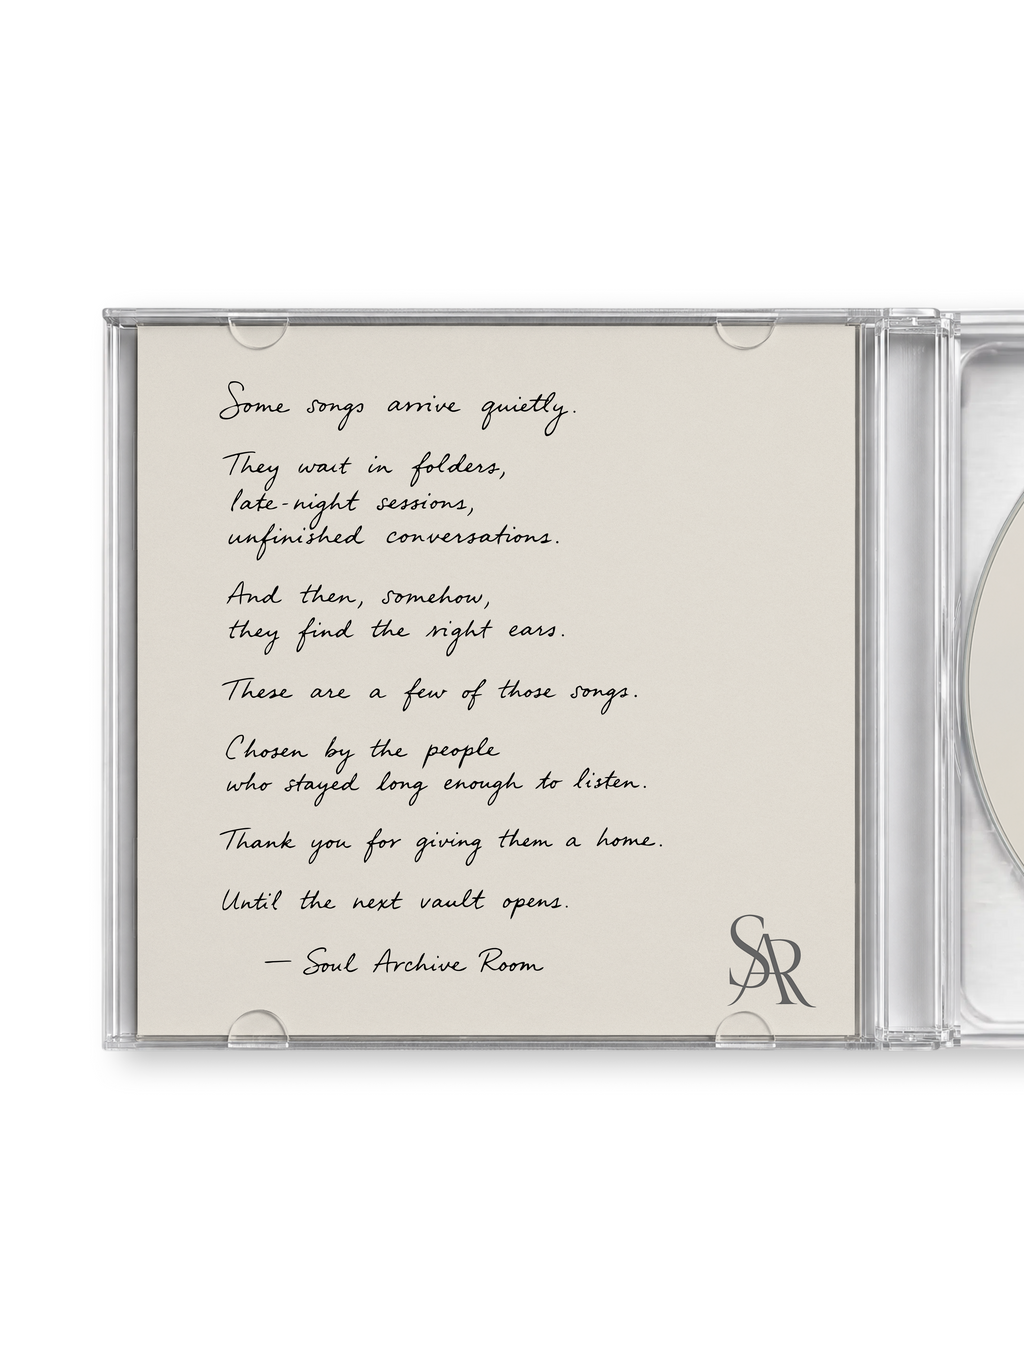 Some songs arrive quietly.
They wait in folders,
late-night sessions,
unfinished conversations.
And then, somehow,
they find the right ears.
These are a few of those songs.
Chosen by the people
who stayed long enough to listen.
Thank you for giving them a home.
Until the next vault opens.
— Soul Archive Room
SAR